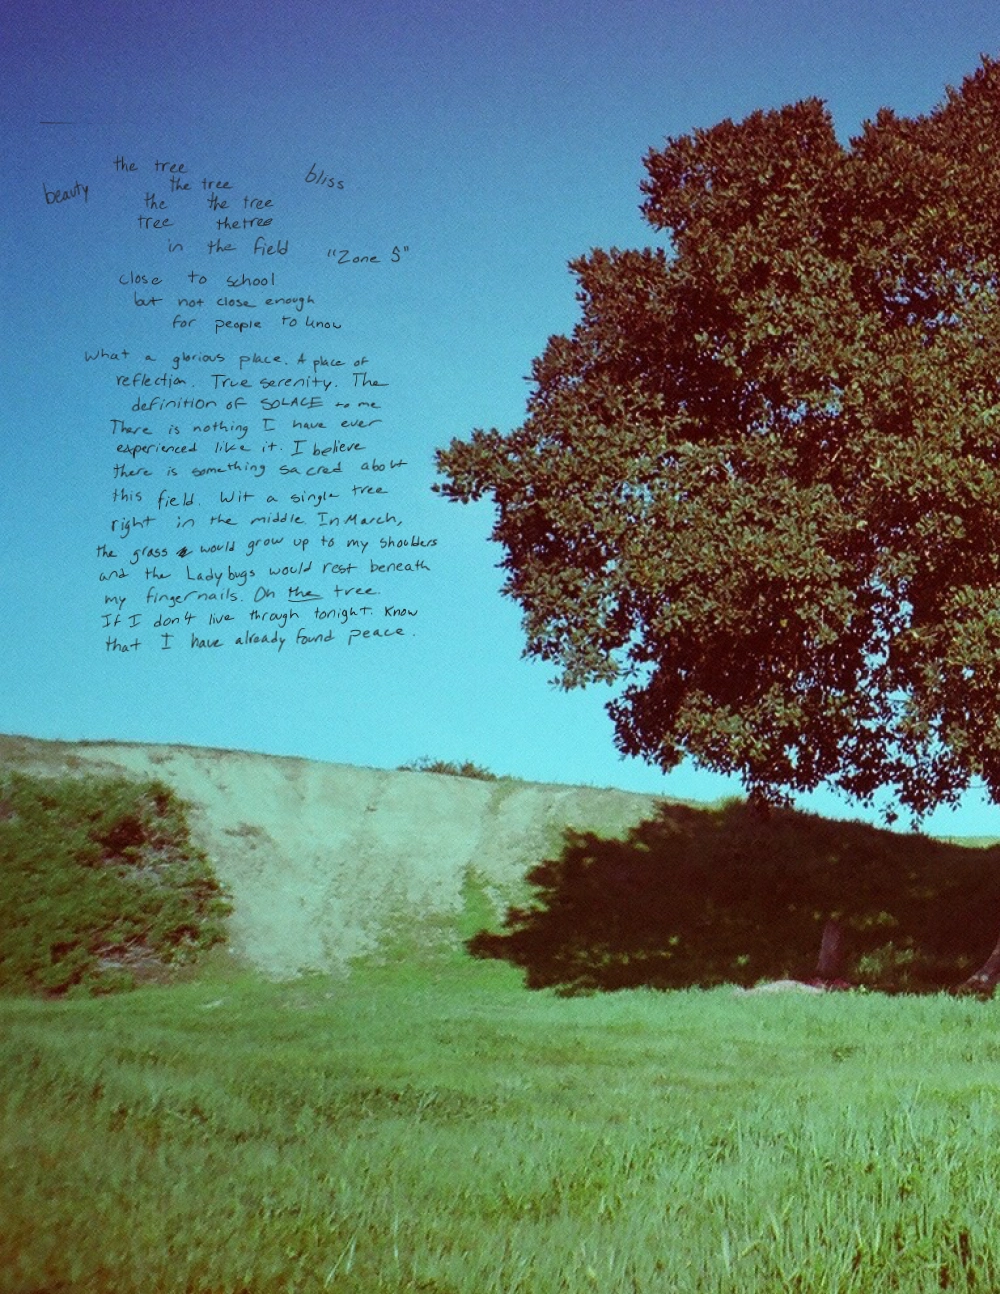 the tree
beauty the tree bliss
the the tree
tree thetree
in the field "Zone S"
close to school
but not close enough
for people to know
What a glorious place. A place of
reflection. True serenity. The
definition of SOLACE to me
There is nothing I have ever
experienced like it. I believe
there is something sacred about
this field. Wit a single tree
right in the middle. In March,
the grass would grow up to my shoulders
and the Ladybugs would rest beneath
my fingernails. Oh the tree.
If I don't live through tonight. Know
that I have already found peace.